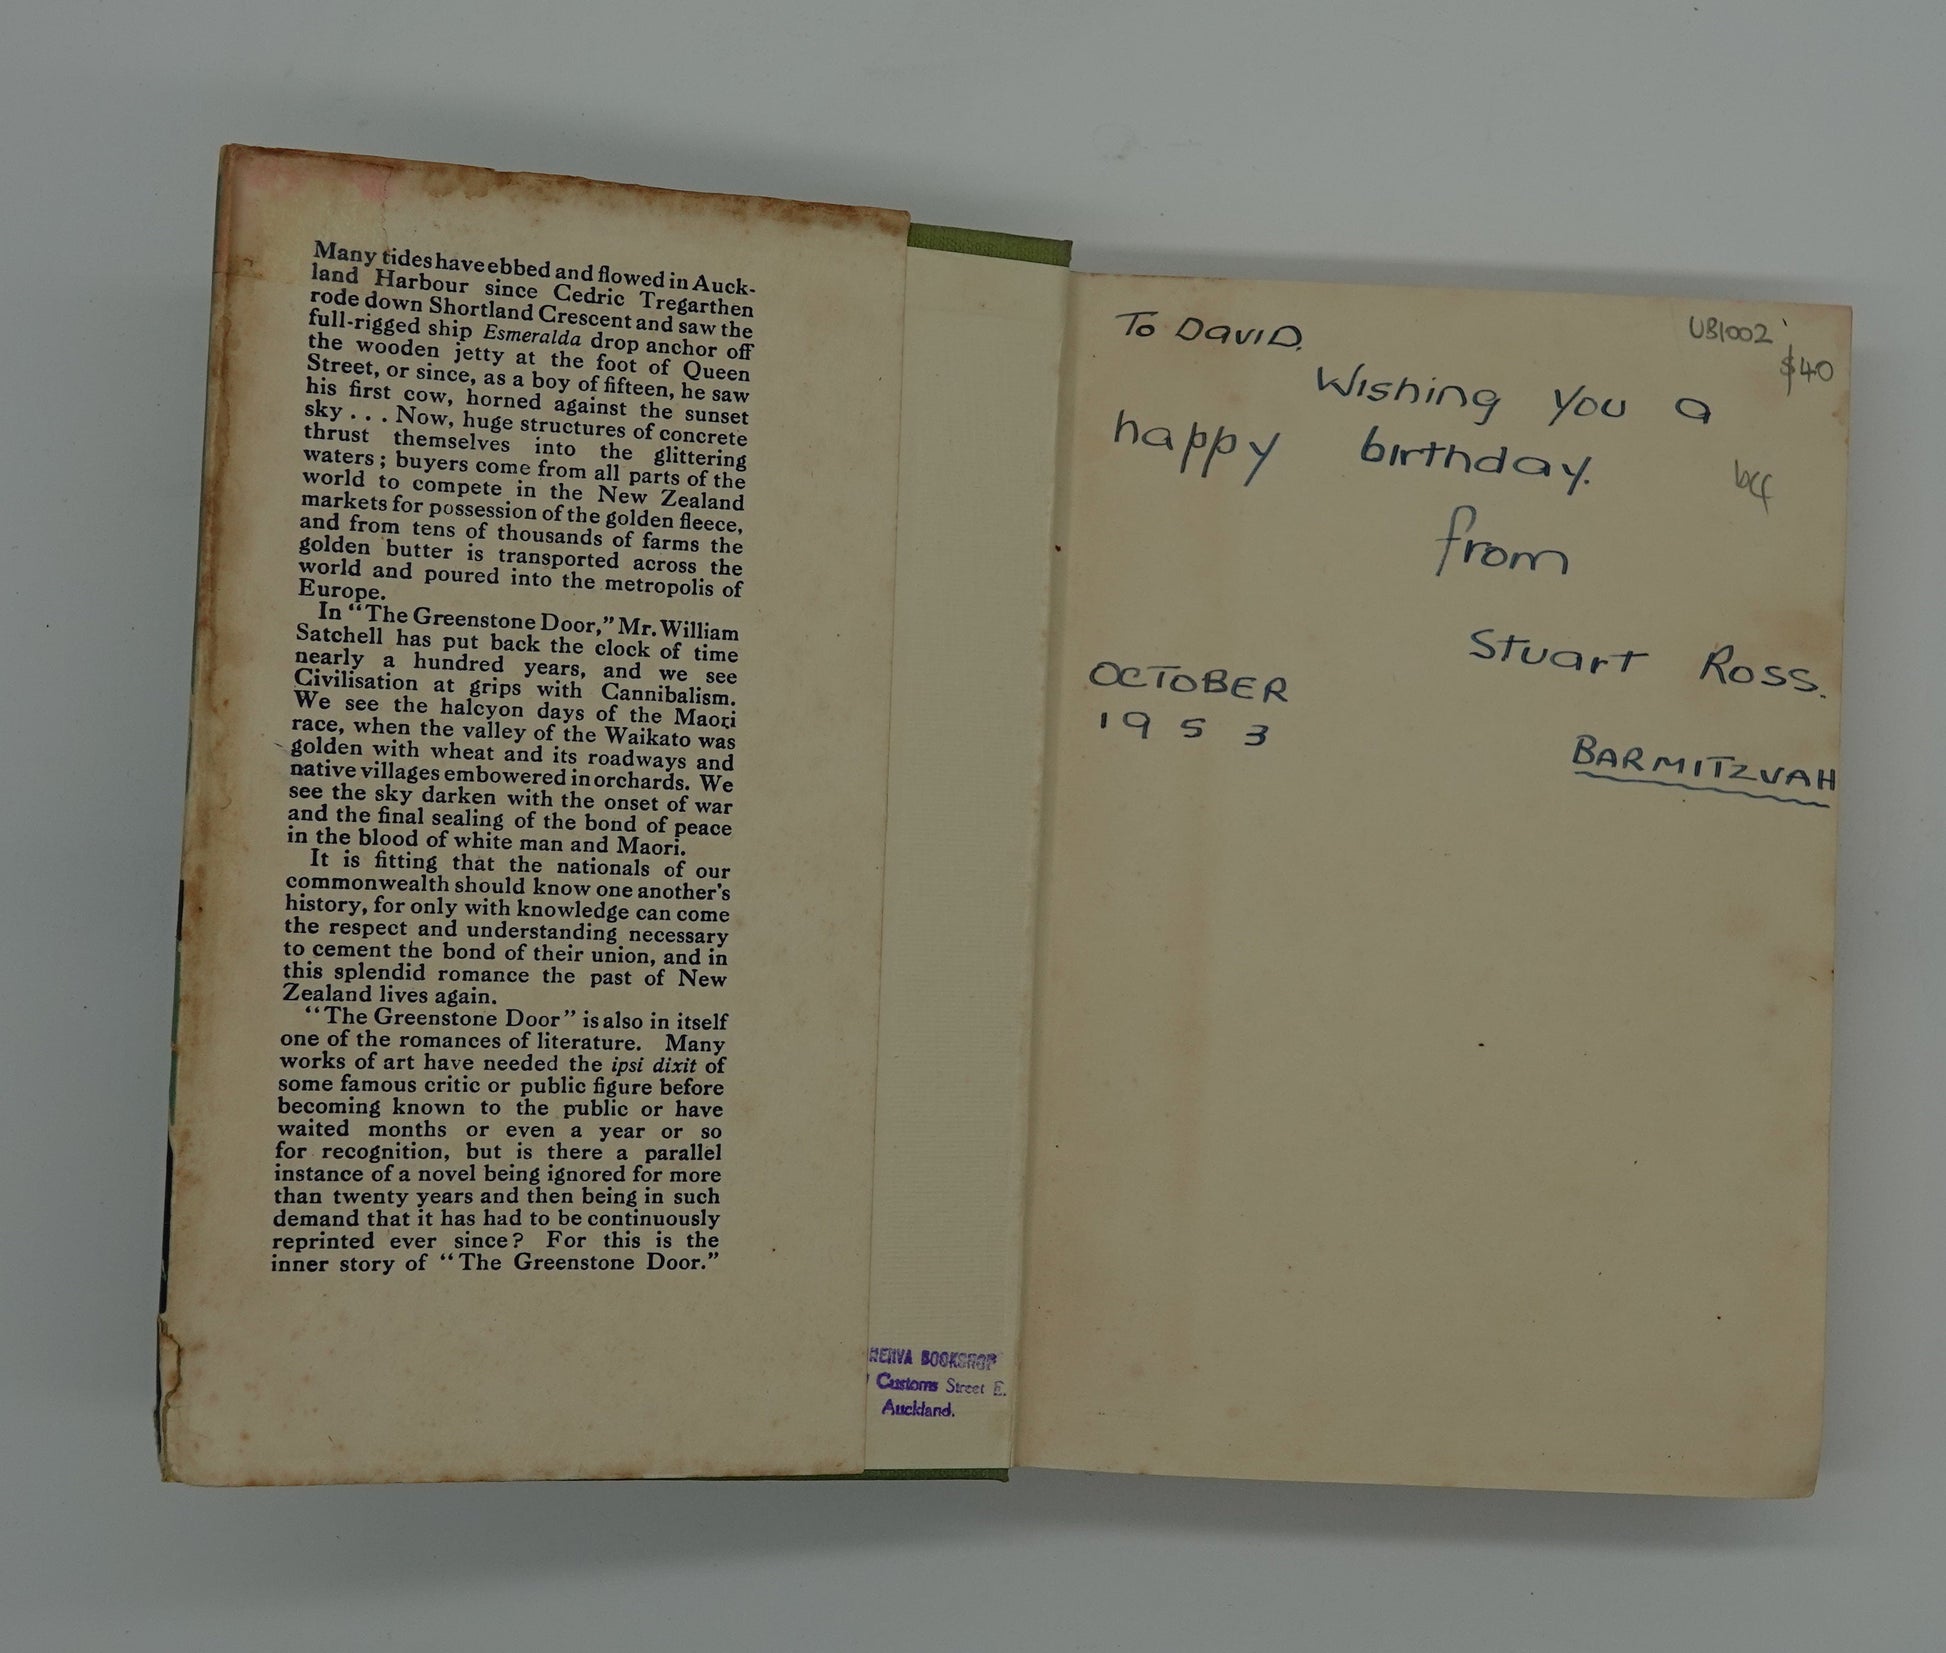 Many tides have ebbed and flowed in Auck-
land Harbour since Cedric Tregarthen
rode down Shortland Crescent and saw the
full-rigged ship Esmeralda drop anchor off
the wooden jetty at the foot of Queen
Street, or since, as a boy of fifteen, he saw
his first cow, horned against the sunset
sky . . . Now, huge structures of concrete
thrust themselves into the glittering
waters; buyers come from all parts of the
world to compete in the New Zealand
markets for possession of the golden fleece,
and from tens of thousands of farms the
golden butter is transported across the
world and poured into the metropolis of
Europe.
In "The Greenstone Door," Mr. William
Satchell has put back the clock of time
nearly a hundred years, and we see
Civilisation at grips with Cannibalism.
We see the halcyon days of the Maori
race, when the valley of the Waikato was
golden with wheat and its roadways and
native villages embowered in orchards. We
see the sky darken with the onset of war
and the final sealing of the bond of peace
in the blood of white man and Maori.
It is fitting that the nationals of our
commonwealth should know one another's
history, for only with knowledge can come
the respect and understanding necessary
to cement the bond of their union, and in
this splendid romance the past of New
Zealand lives again.
"The Greenstone Door" is also in itself
one of the romances of literature. Many
works of art have needed the ipsi dixit of
some famous critic or public figure before
becoming known to the public or have
waited months or even a year or so
for recognition, but is there a parallel
instance of a novel being ignored for more
than twenty years and then being in such
demand that it has had to be continuously
reprinted ever since? For this is the
inner story of "The Greenstone Door."
BOOKSHOP
Customs Street E.
Auckland.
To David.
UB1002
$40
Wishing you a
happy birthday.
from
Stuart Ross.
OCTOBER
1953
BARMITZVAH